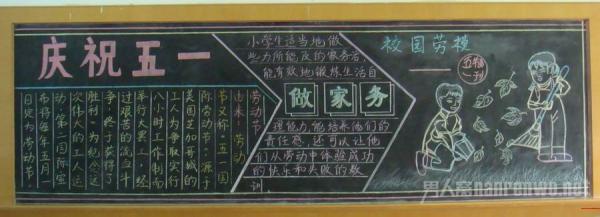 庆祝五一
劳动节
由来：劳动
节又称“五一国
际劳动节”源于
美国芝加哥城的
工人为争取实行
八小时工作制而
举行大罢工，经
过艰苦的流血斗
争，终于获得了
胜利。为纪念这
次伟大的工人运
动，第二国际宣
布将每年五月
日定为劳动节。
小学生适当地做
些力所能及的家务活，
能有效地锻炼生活自
做家务
理能力，能培养他们的
责任感，还可以让他
们从劳动中体验成功
的快乐和失败的教
训。
校园劳模
一刊
男人窝nanrenwo.net